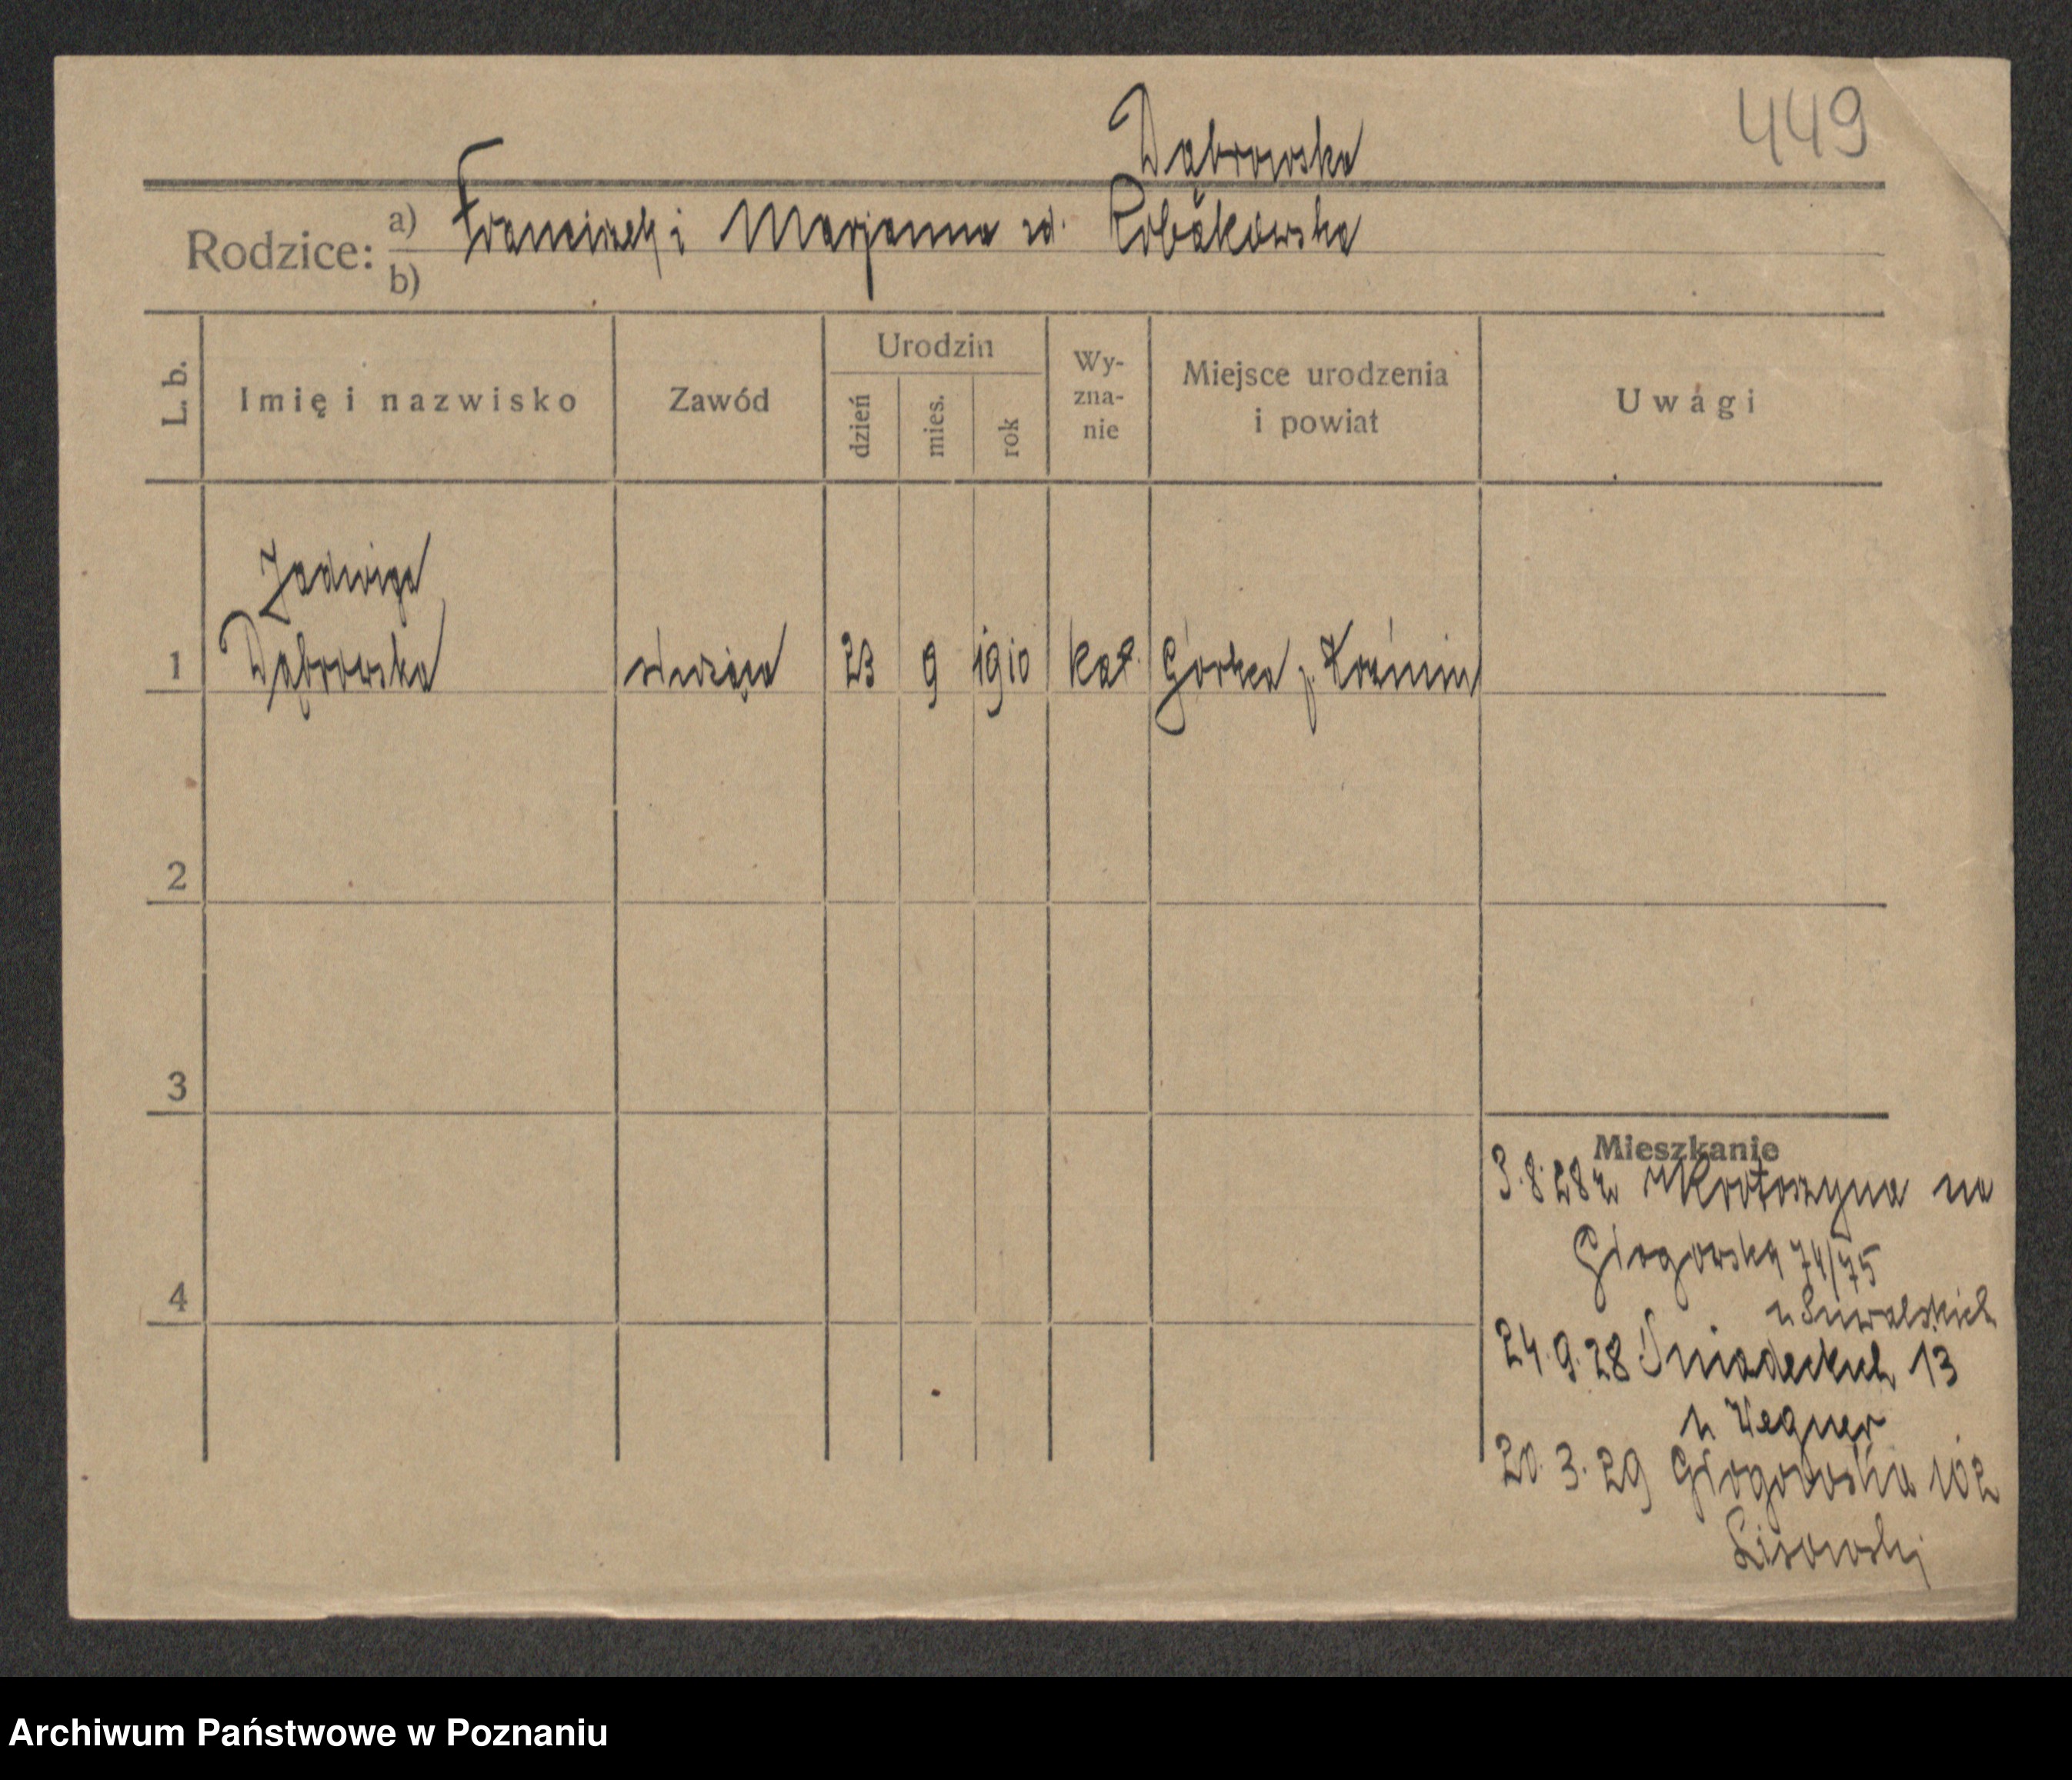 449
Dąbrowska
Rodzice: a) Franciszek i Marjanna zd. Robakowska
b)
L. b.
Imię i nazwisko
Zawód
Urodzin
dzień
mies.
rok
Wy-
zna-
nie
Miejsce urodzenia
i powiat
Uwagi
Jadwiga
1 Dąbrowska służąca 23 9 1910 kat. Górka p. Koźmin
2
3
4
Mieszkanie
3.8.28 z Krotoszyna na
Głogowską 74/75
u Suwalskich
24.9.28 Śniadeckich 13
u Wegner
20.3.29 Głogowska 102
Lisowski
Archiwum Państwowe w Poznaniu